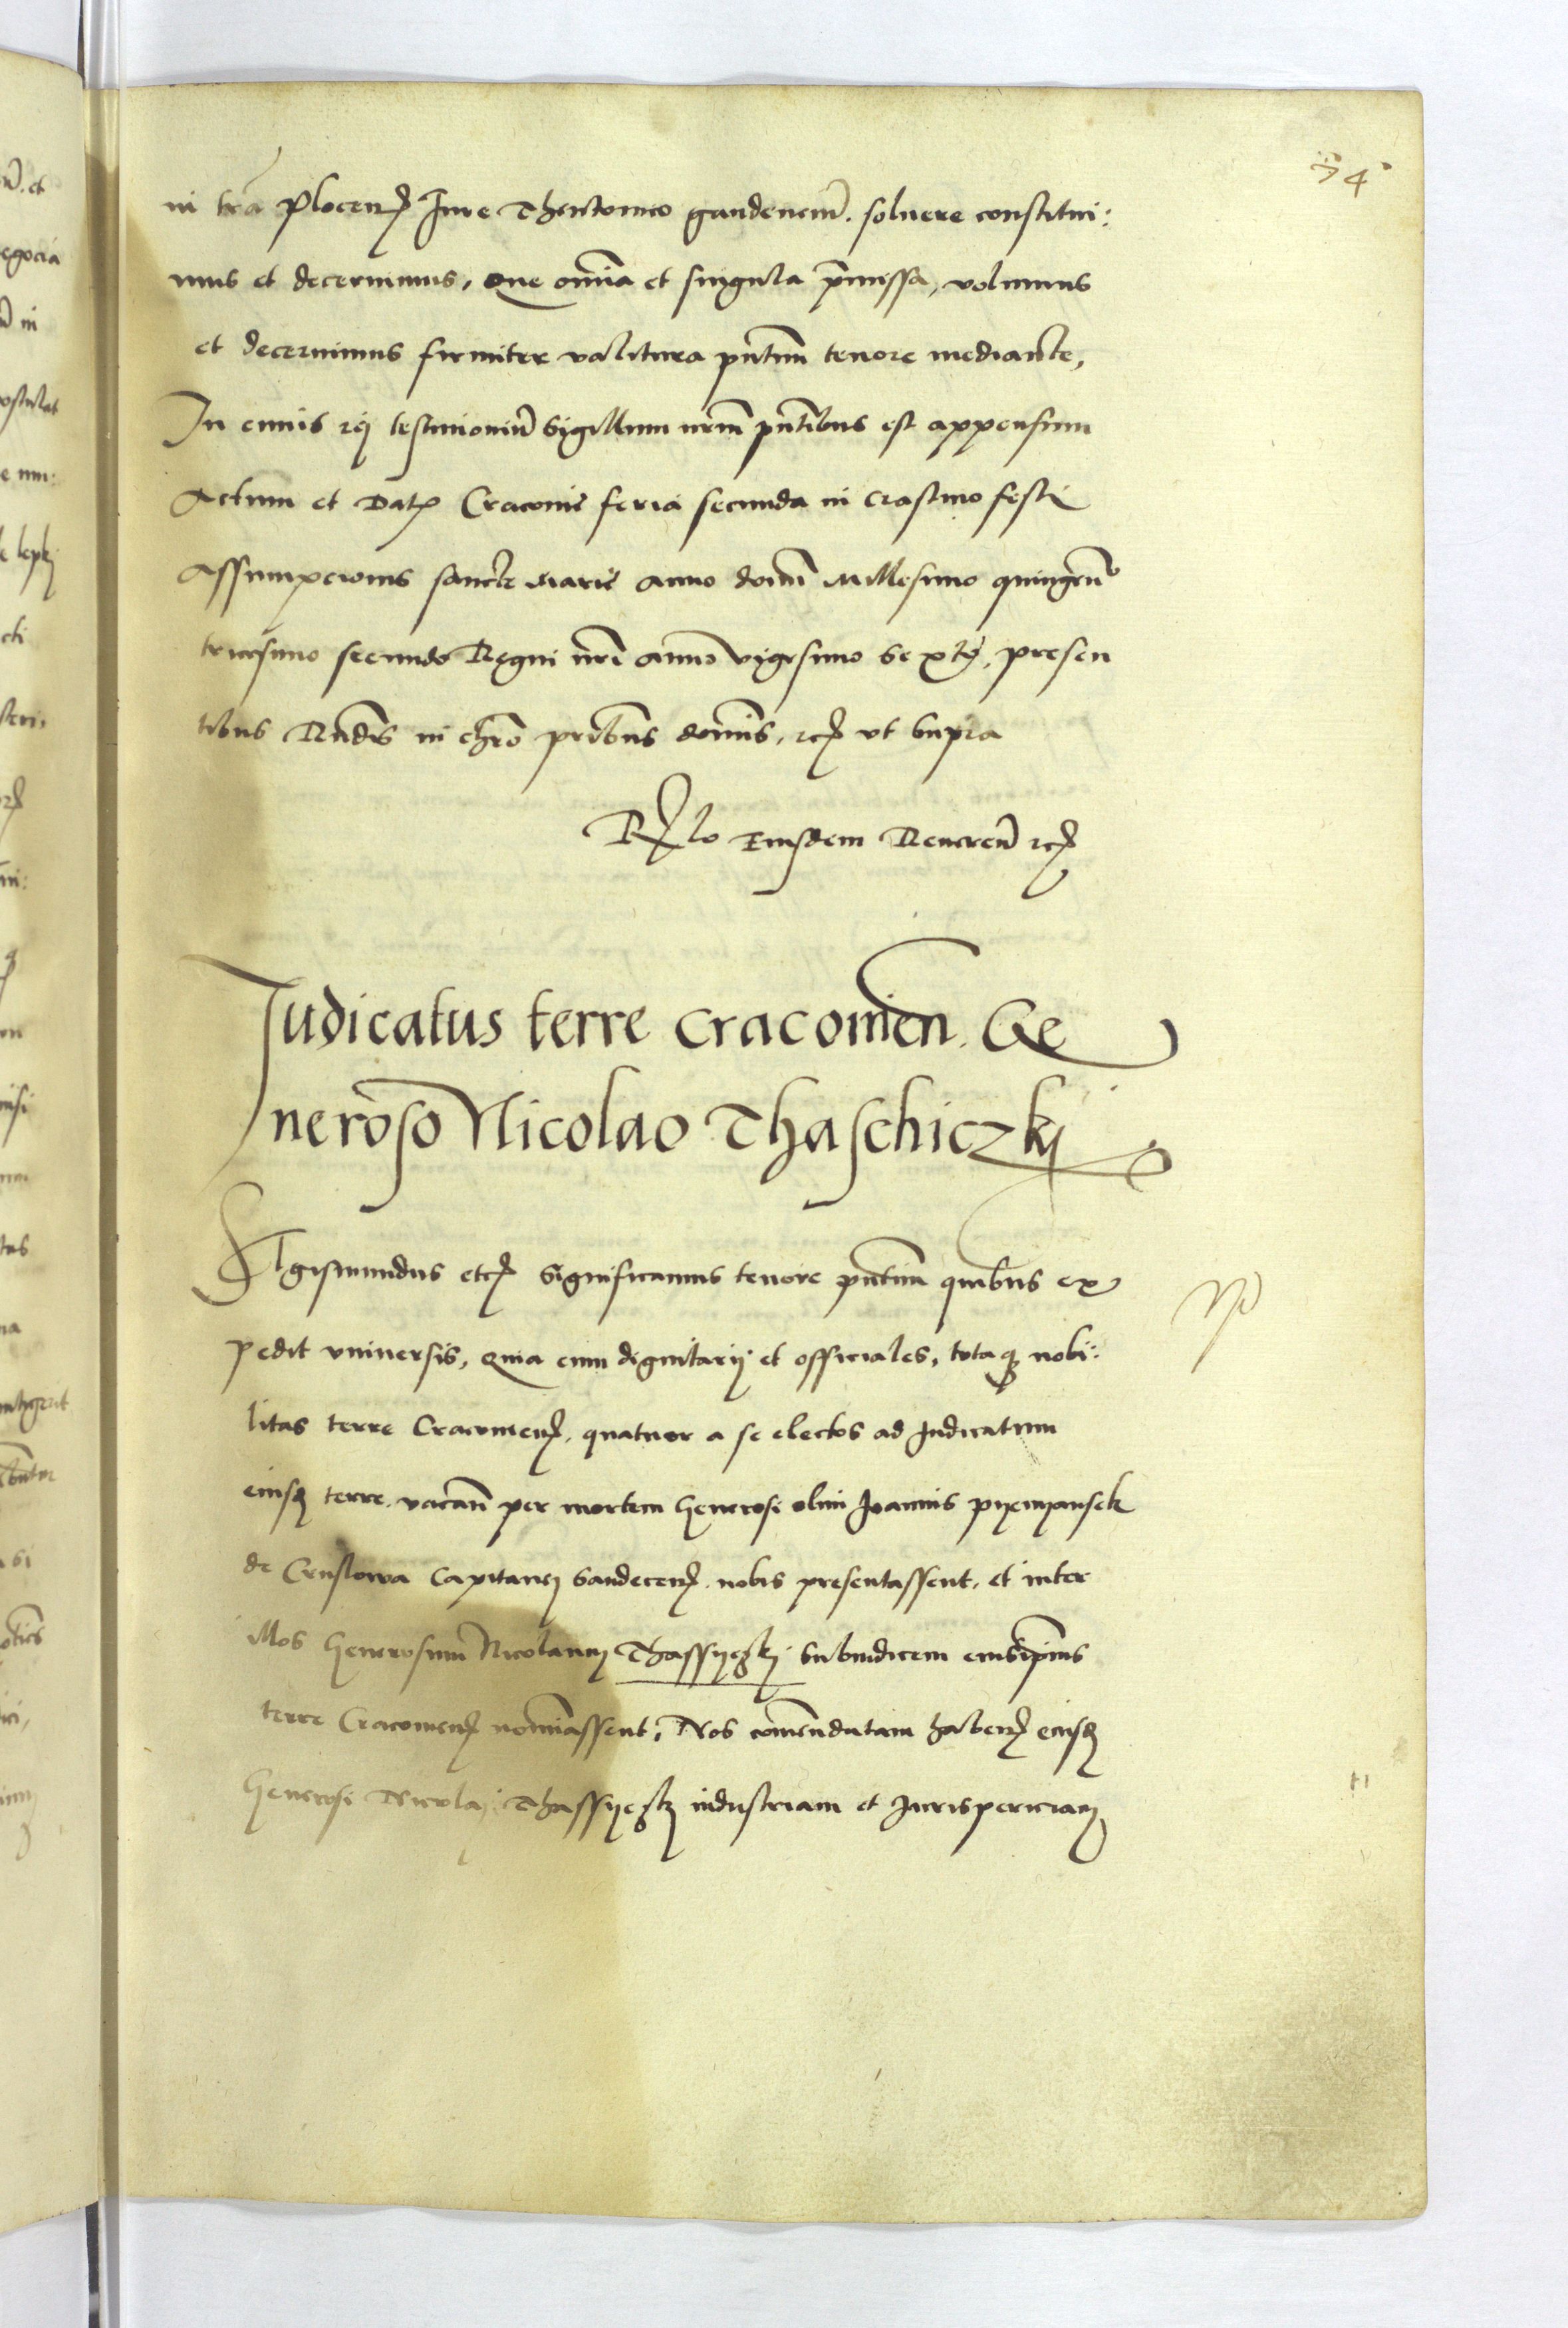 34
in tra Plocen Jure Theutonico gauden. soluere constitui:
mus et decernimus, que omia et singula pmissa, volumus
et decernimus firmiter valitura pntium tenore mediante,
In cuius rei testimoniu Sigillum nrum pntibus est appensum
Actum et Dat Cracouie feria secunda in Crastino festi
Assumpcionis sancte Marie anno domi Millesimo quingen
tricesimo secundo Regni nri anno vigesimo Sexto, presen
tibus Rndis in chro pribus domis, etc vt supra
Rlo Eiusdem Reueren etc
Judicatus terre Cracouien. Ge
neroso Nicolao Thaschiczky
Sigismundus etc Significamus tenore pntium quibus ex
pedit vniuersis, Quia cum dignitarij et officiales, totaq nobi:
litas terre Cracouien, quatuor a se electos ad Judicatum
eiusd terre, vacan per mortem Generosi olim Joannis pyenyansek
de Cruslowa Capitanei Sandecen. nobis presentassent, et inter
illos Generosum Nicolaum Thassyczky Subiudicem eiusdipius
terre Cracouien nominassent, Nos comendatam haben eiusd
Generosi Nicolai Thassyczky industriam et Jurispericiam